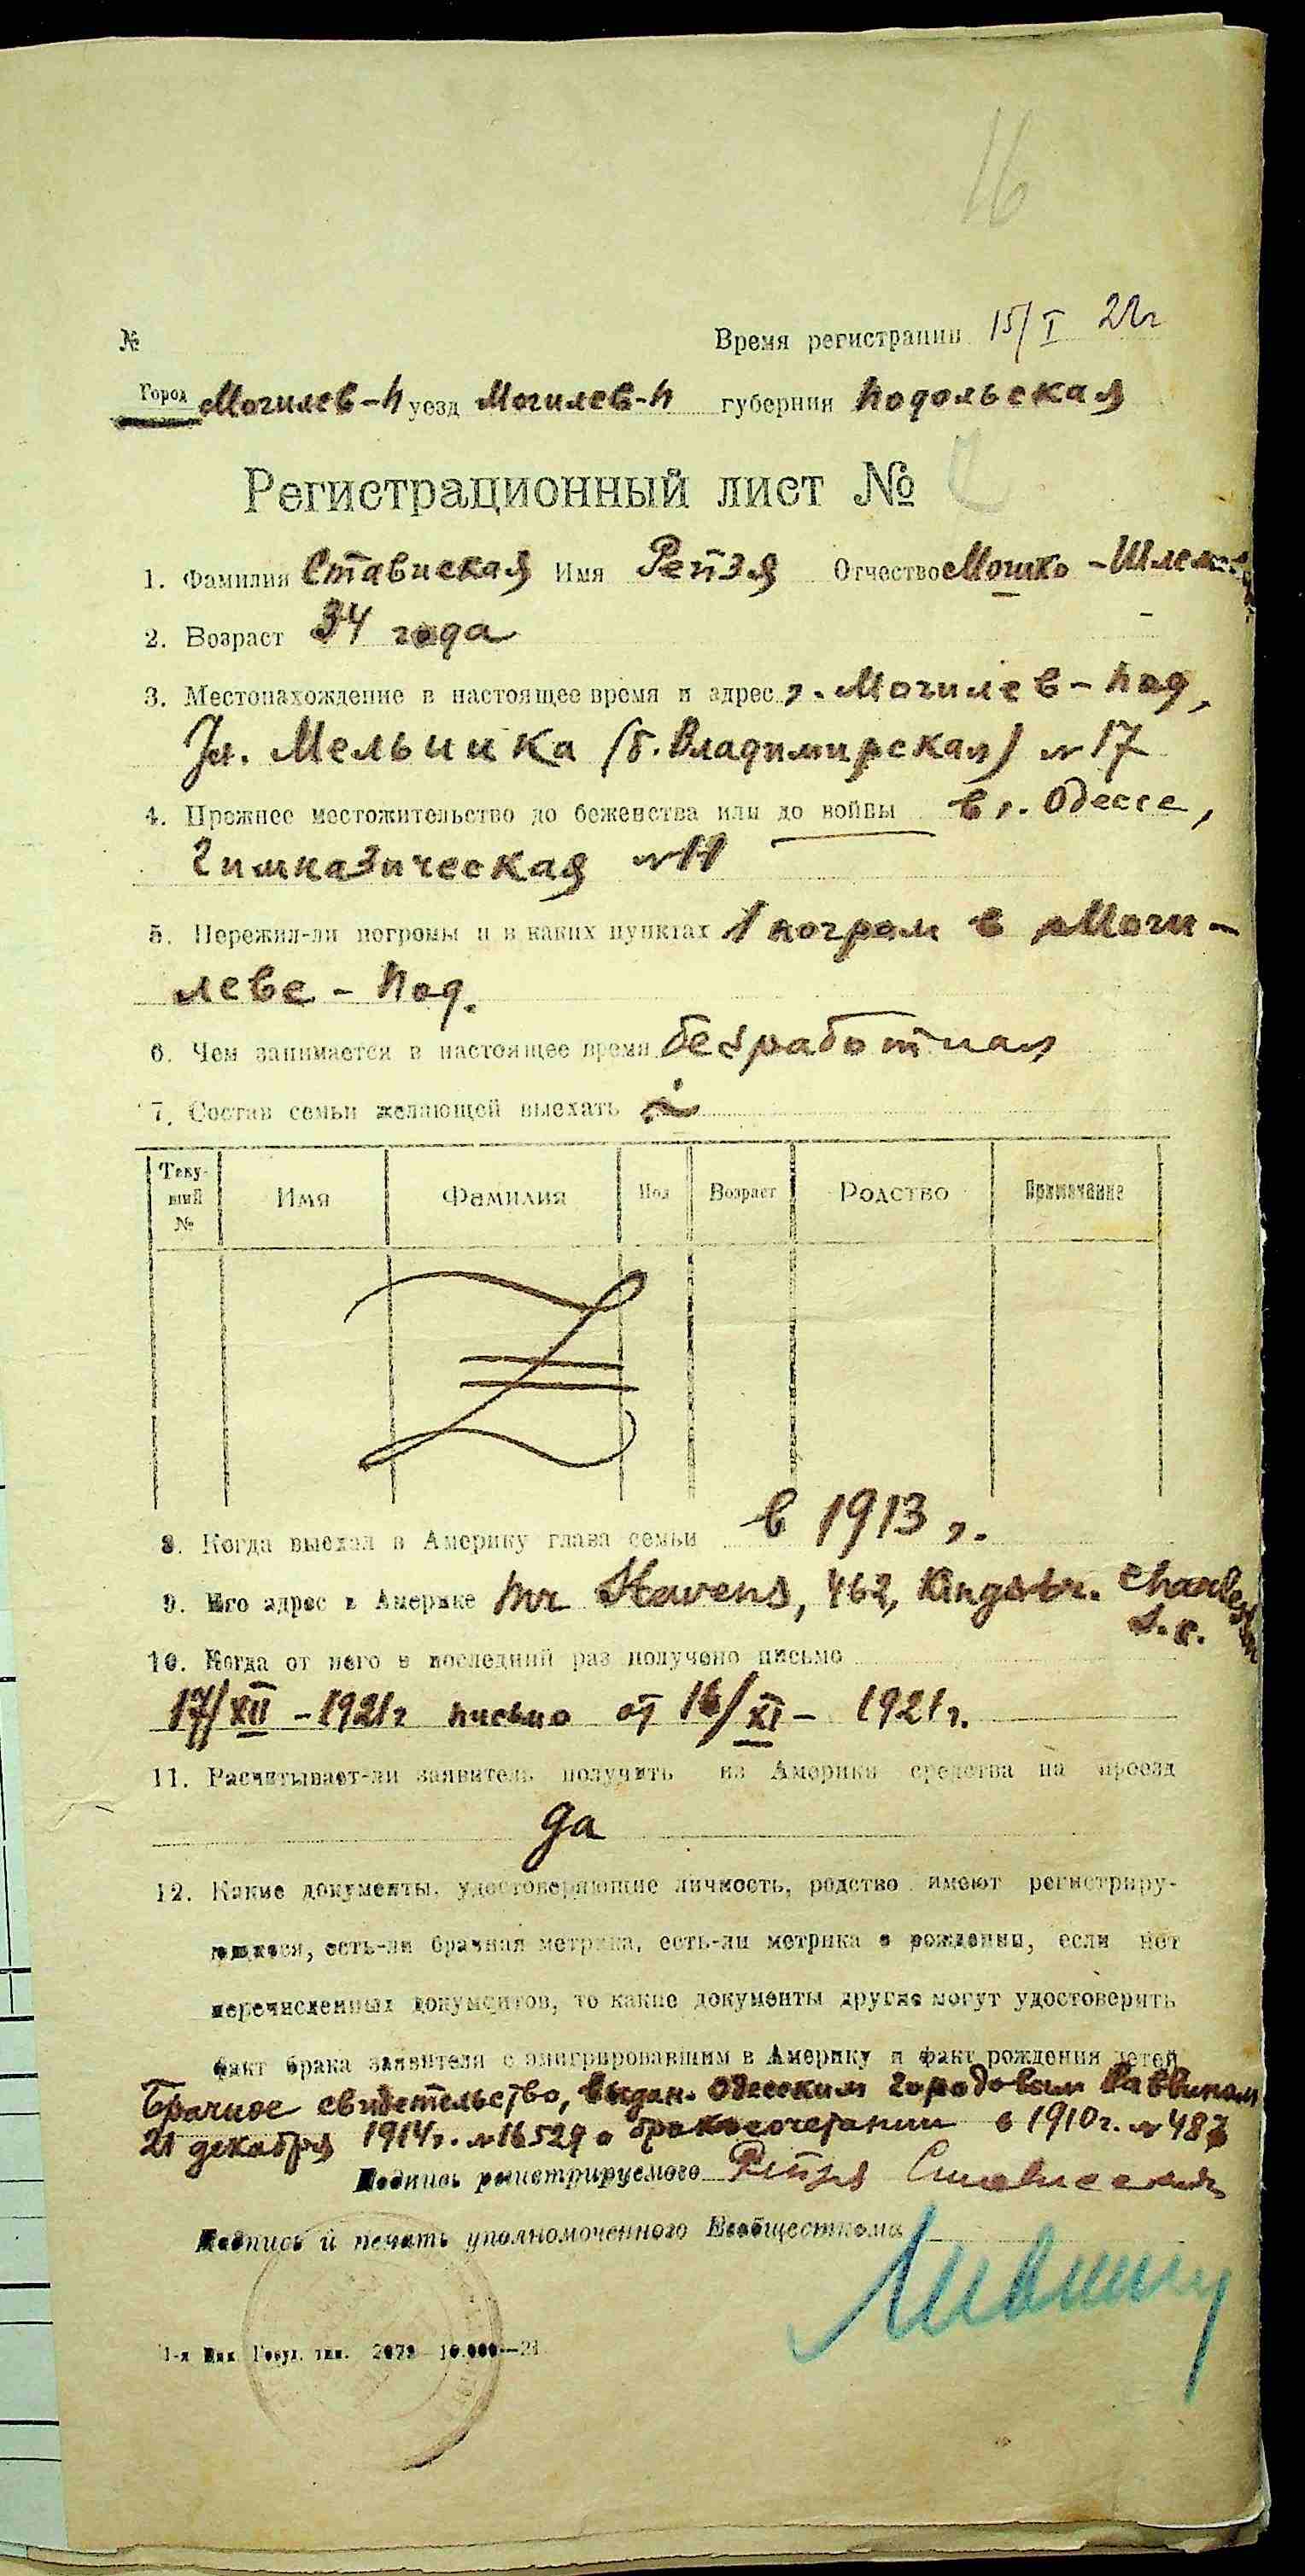 16
№ Время регистрации 15/I 22г
Город Могилев-П уезд Могилев-П губерния Подольская
Регистрационный лист №
1. Фамилия Ставиская Имя Рейзя Отчество Мошко-Шлем
2. Возраст 34 года
3. Местонахождение в настоящее время и адрес г. Могилев-Под,
Ул. Мельника (б. Владимирская) № 17
4. Прежнее местожительство до беженства или до войны в г. Одессе,
Гимназическая № 11
5. Пережил-ли погромы и в каких пунктах 1 погром в Моги-
леве-Под.
6. Чем занимается в настоящее время безработная
7. Состав семьи желающей выехать
Теку-
щий
№ Имя Фамилия Пол Возраст Родство Примечание
8. Когда выехал в Америку глава семьи в 1913 г.
9. Его адрес в Америке Mr Stavens, 462, Kingstr. Charleston
S.C.
10. Когда от него в последний раз получено письмо
17/XII - 1921г письмо от 16/XI - 1921г.
11. Расчитывает-ли заявитель получить из Америки средства на проезд
да
12. Какие документы, удостоверяющие личность, родство имеют регистриру-
ющиеся, есть-ли брачная метрика, есть-ли метрика о рождении, если нет
перечисленных документов, то какие документы другие могут удостоверить
факт брака заявителя с эмигрировавшим в Америку и факт рождения детей
Брачное свидетельство, выдан. Одесским городовым Раввином
21 декабря 1914г. № 16529 о бракосочетании в 1910г. № 487
Подпись регистрируемого Рейзя Ставиская
Подпись и печать уполномоченного Евобщесткома
2073 10.000—21